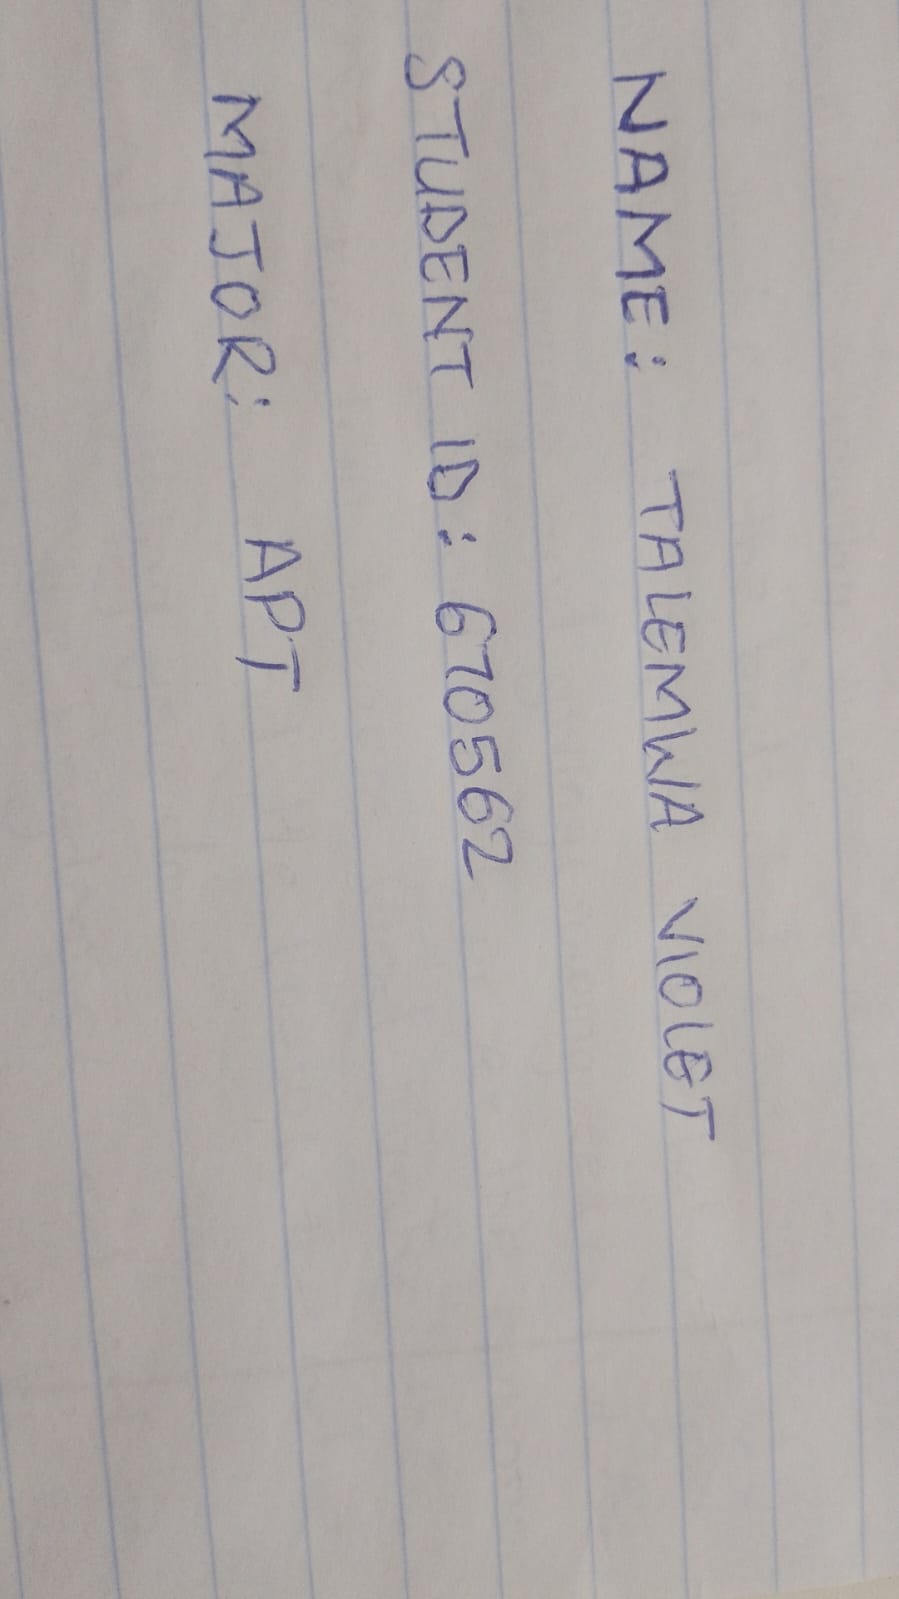 NAME: TALEMWA VIOLET
STUDENT ID: 670562
MAJOR: APT